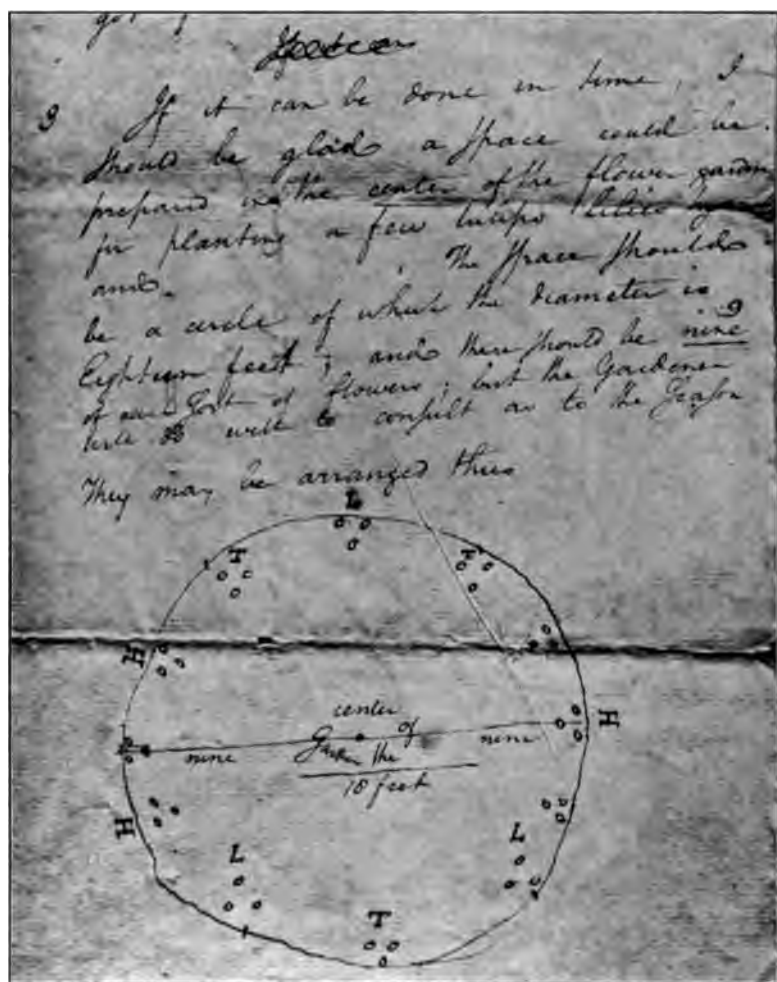 9 If it can be done in time, I
should be glad a space could be
prepared in the center of the flower garden
for planting a few tulips lilies
and. The space should
be a circle of which the diameter is
Eighteen feet; and there should be nine
of each sort of flowers; but the Gardener
will well to consult as to the Season
They may be arranged thus
L
T T
H
center
of
H
nine Garden the nine
18 feet
H
L L
T